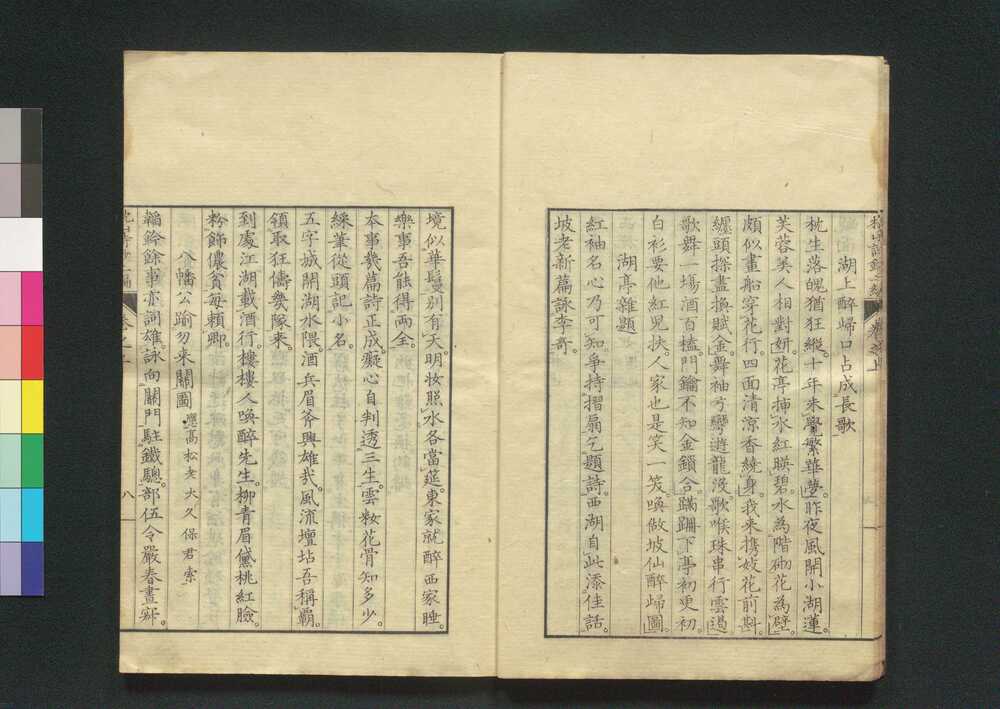 湖上醉歸口占成長歌
枕生落魄猶狂縱。十年來覺繁華夢。昨夜風開小湖蓮。
芙蓉美人相對妍。花亭插水紅膜碧。水為階砌花為壁。
頗似畫船穿花行。四面清涼香繞身。我来携妓花前斟。
纏頭探盡換賦金。舞袖弓彎遊龍沒。歌喉珠串行雲遏。
歌舞一場酒百榼。門鑰不知金鎖合。蹣跚下亭初更初。
白衫要他紅兒扶。人家也是笑一笑。喚做坡仙醉歸圖。
湖亭雜題
紅袖名心乃可知。爭持摺扇乞題詩。西湖自此添佳話。
坡老新篇詠李奇。
境似華鬘別有天。明妝照水各當筵。東家就醉西家睡。
樂事吾能得兩全。
本事幾篇詩正成。癡心自判透三生。雲籹花骨知多少。
綵筆從頭記小名。
五字城開湖水隈。酒兵眉斧興雄哉。風流壇坫吾稱霸。
領取狂儔幾隊來。
到處江湖載酒行。樓樓人喚醉先生。柳青眉黛桃紅臉。
粉餙儂貧每賴卿。
八幡公踰勿来關圖 應高松老大久保君索
韜鈐餘事亦詞雄。詠向關門駐鐵驄。部伍令嚴春晝寂。
卷之上
八